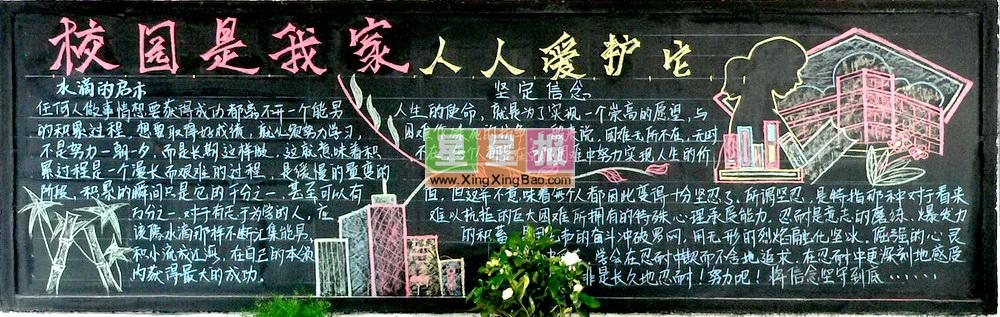 校园是我家 人人爱护它
水滴的启示
任何人做事情想要获得成功都离不开一个能易
的积累过程，想要取得好成绩，就必须努力学习，
不是努力一朝一夕，而是长期这样做，这就意味着积
累过程是一个漫长而艰难的过程，是缓慢的重复的
阶段，积累的瞬间只是它的千分之一，甚至可以有
万分之一，对于有志于为学的人，在
该像水滴那样不断汇集能易，
积小流成江海，在自己的本领
内获得最大的成功。
坚定信念
人生的使命，就是为了实现一个崇高的愿望，与
困难 困难无所不在，无时
不在 难中努力实现人生的价
值，但这并不意味着每个人都因此变得十分坚忍了。所谓坚忍，是特指那种对于看来
难以抗拒的巨大困难所拥有的特殊心理承受能力。忍耐是意志的磨练、爆发力
的积蓄，是用无声的奋斗冲破罗网，用无形的烈焰融化坚冰。倔强的心灵
会在忍耐中锲而不舍地追求，在忍耐中更深刻地感度
非是长久地忍耐！努力吧！将信念坚守到底……
星星报
www.XingXingBao.com